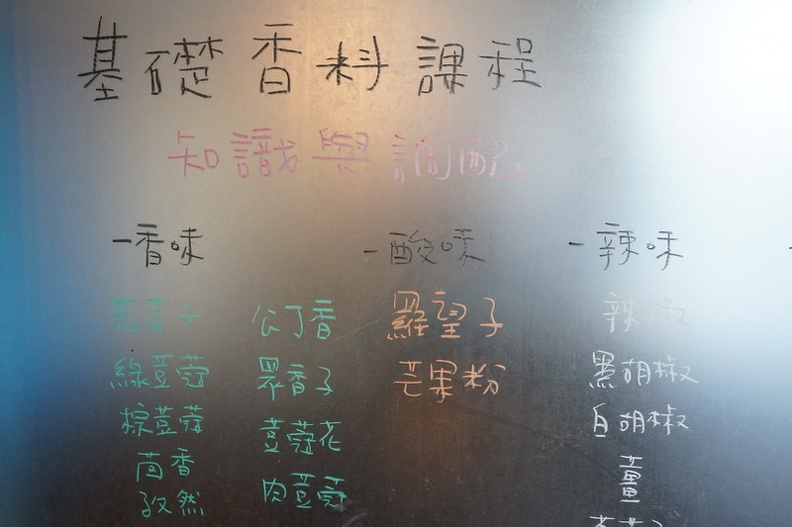 基礎香料課程
知識與調配
-香味
綠荳蔻
棕荳蔻
茴香
孜然
公丁香
眾香子
荳蔻花
肉荳蔻
-酸味
羅望子
芒果粉
-辣味
辣椒
黑胡椒
白胡椒
薑